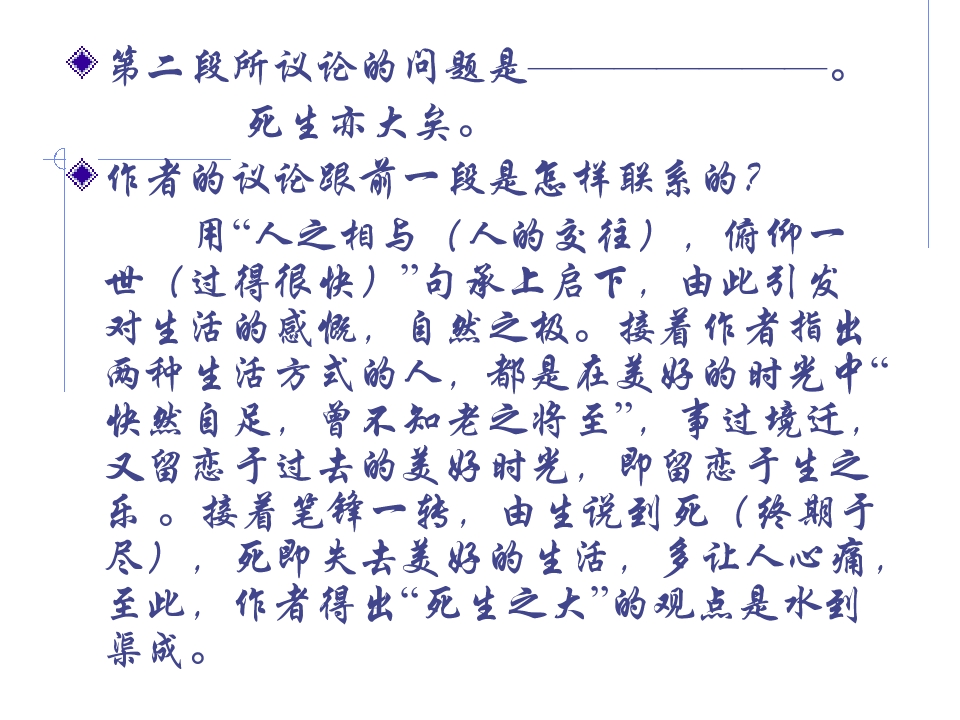 第二段所议论的问题是——————————。
死生亦大矣。
作者的议论跟前一段是怎样联系的？
用“人之相与（人的交往），俯仰一
世（过得很快）”句承上启下，由此引发
对生活的感慨，自然之极。接着作者指出
两种生活方式的人，都是在美好的时光中“
快然自足，曾不知老之将至”，事过境迁，
又留恋于过去的美好时光，即留恋于生之
乐 。接着笔锋一转，由生说到死（终期于
尽），死即失去美好的生活，多让人心痛，
至此，作者得出“死生之大”的观点是水到
渠成。